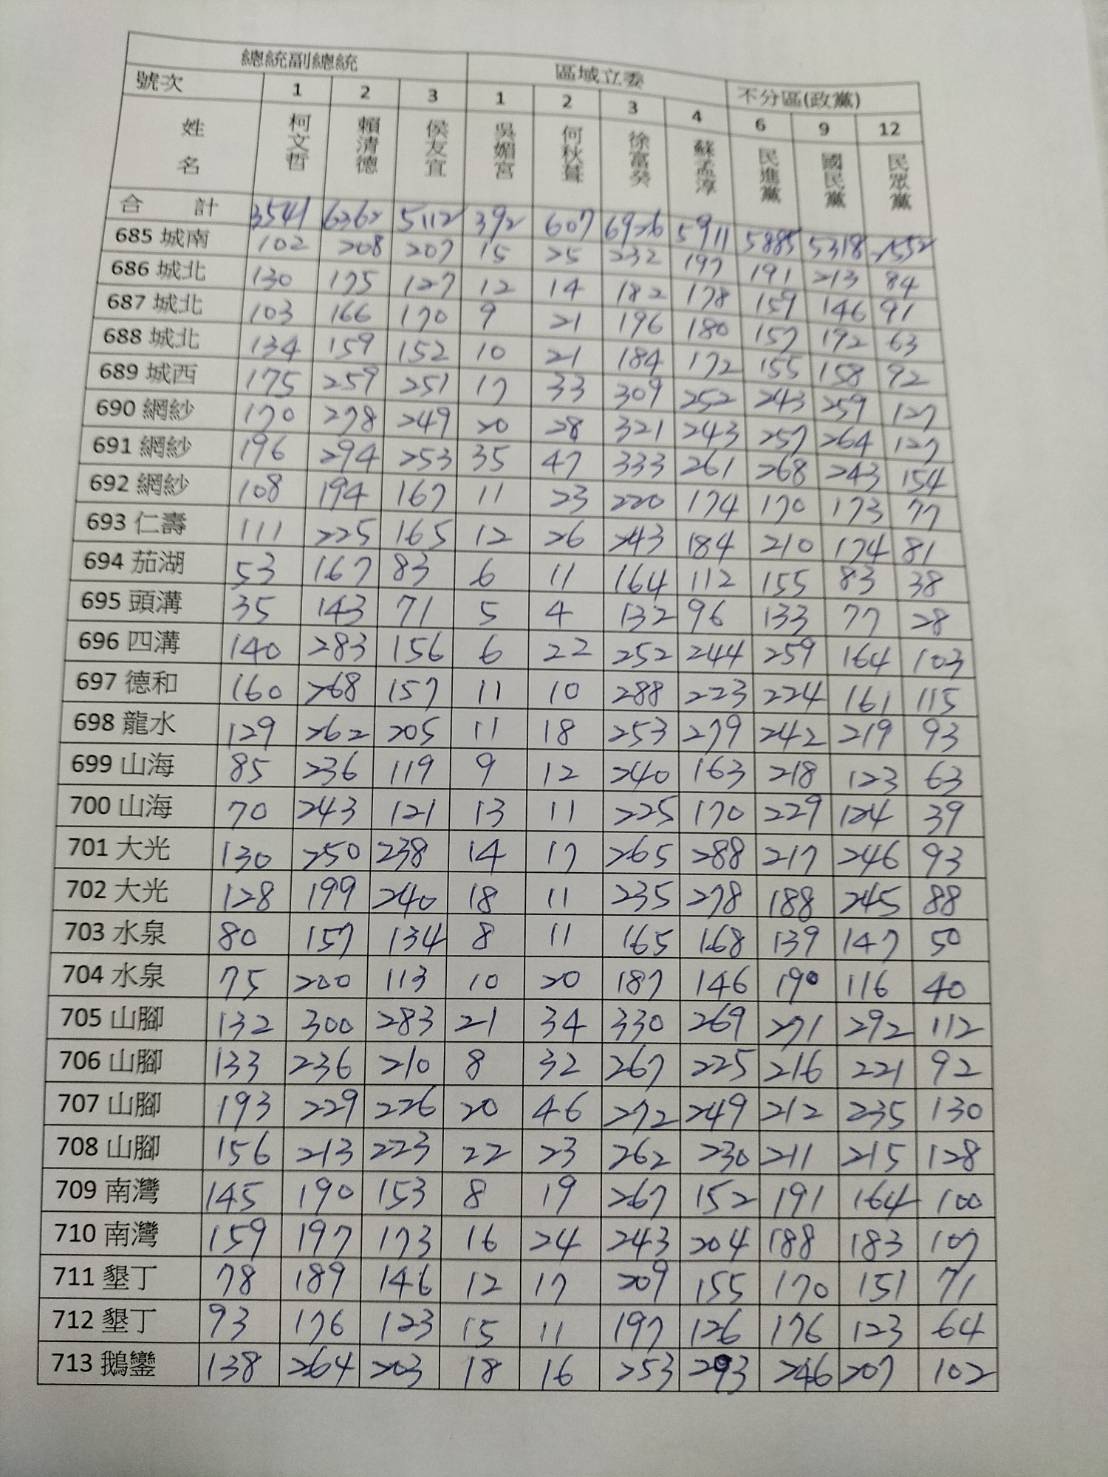 總統副總統 區域立委 不分區(政黨)
號次 1 2 3 1 2 3 4 6 9 12
姓名 柯文哲 賴清德 侯友宜 吳媚宮 何秋葺 徐富癸 蘇孟淳 民進黨 國民黨 民眾黨
合計 3541 6362 5112 392 607 6926 5911 5885 5318 2552
685 城南 102 208 207 15 25 232 197 191 213 84
686 城北 130 175 127 12 14 182 178 159 146 91
687 城北 103 166 170 9 21 196 180 157 192 63
688 城北 134 159 152 10 21 184 172 155 158 92
689 城西 175 259 251 17 33 309 252 243 259 127
690 網紗 170 278 249 20 28 321 243 257 264 127
691 網紗 196 294 253 35 47 333 261 268 243 154
692 網紗 108 194 167 11 23 220 174 170 173 77
693 仁壽 111 225 165 12 26 243 184 210 174 81
694 茄湖 53 167 83 6 11 164 112 155 83 38
695 頭溝 35 143 71 5 4 132 96 133 77 28
696 四溝 140 283 156 6 22 252 244 259 164 103
697 德和 160 268 157 11 10 288 223 224 161 115
698 龍水 129 262 205 11 18 253 279 242 219 93
699 山海 85 236 119 9 12 240 163 218 123 63
700 山海 70 243 121 13 11 225 170 229 124 39
701 大光 130 250 238 14 17 265 288 217 246 93
702 大光 128 199 240 18 11 235 278 188 245 88
703 水泉 80 157 134 8 11 165 168 139 147 50
704 水泉 75 200 113 10 20 187 146 190 116 40
705 山腳 132 300 283 21 34 330 269 271 292 112
706 山腳 133 236 210 8 32 267 225 216 221 92
707 山腳 193 229 226 20 46 272 249 212 235 130
708 山腳 156 213 223 22 23 262 230 211 215 128
709 南灣 145 190 153 8 19 267 152 191 164 100
710 南灣 159 197 173 16 24 243 204 188 183 107
711 墾丁 78 189 146 12 17 209 155 170 151 71
712 墾丁 93 176 123 15 11 197 126 176 123 64
713 鵝鑾 138 264 203 18 16 253 293 246 207 102